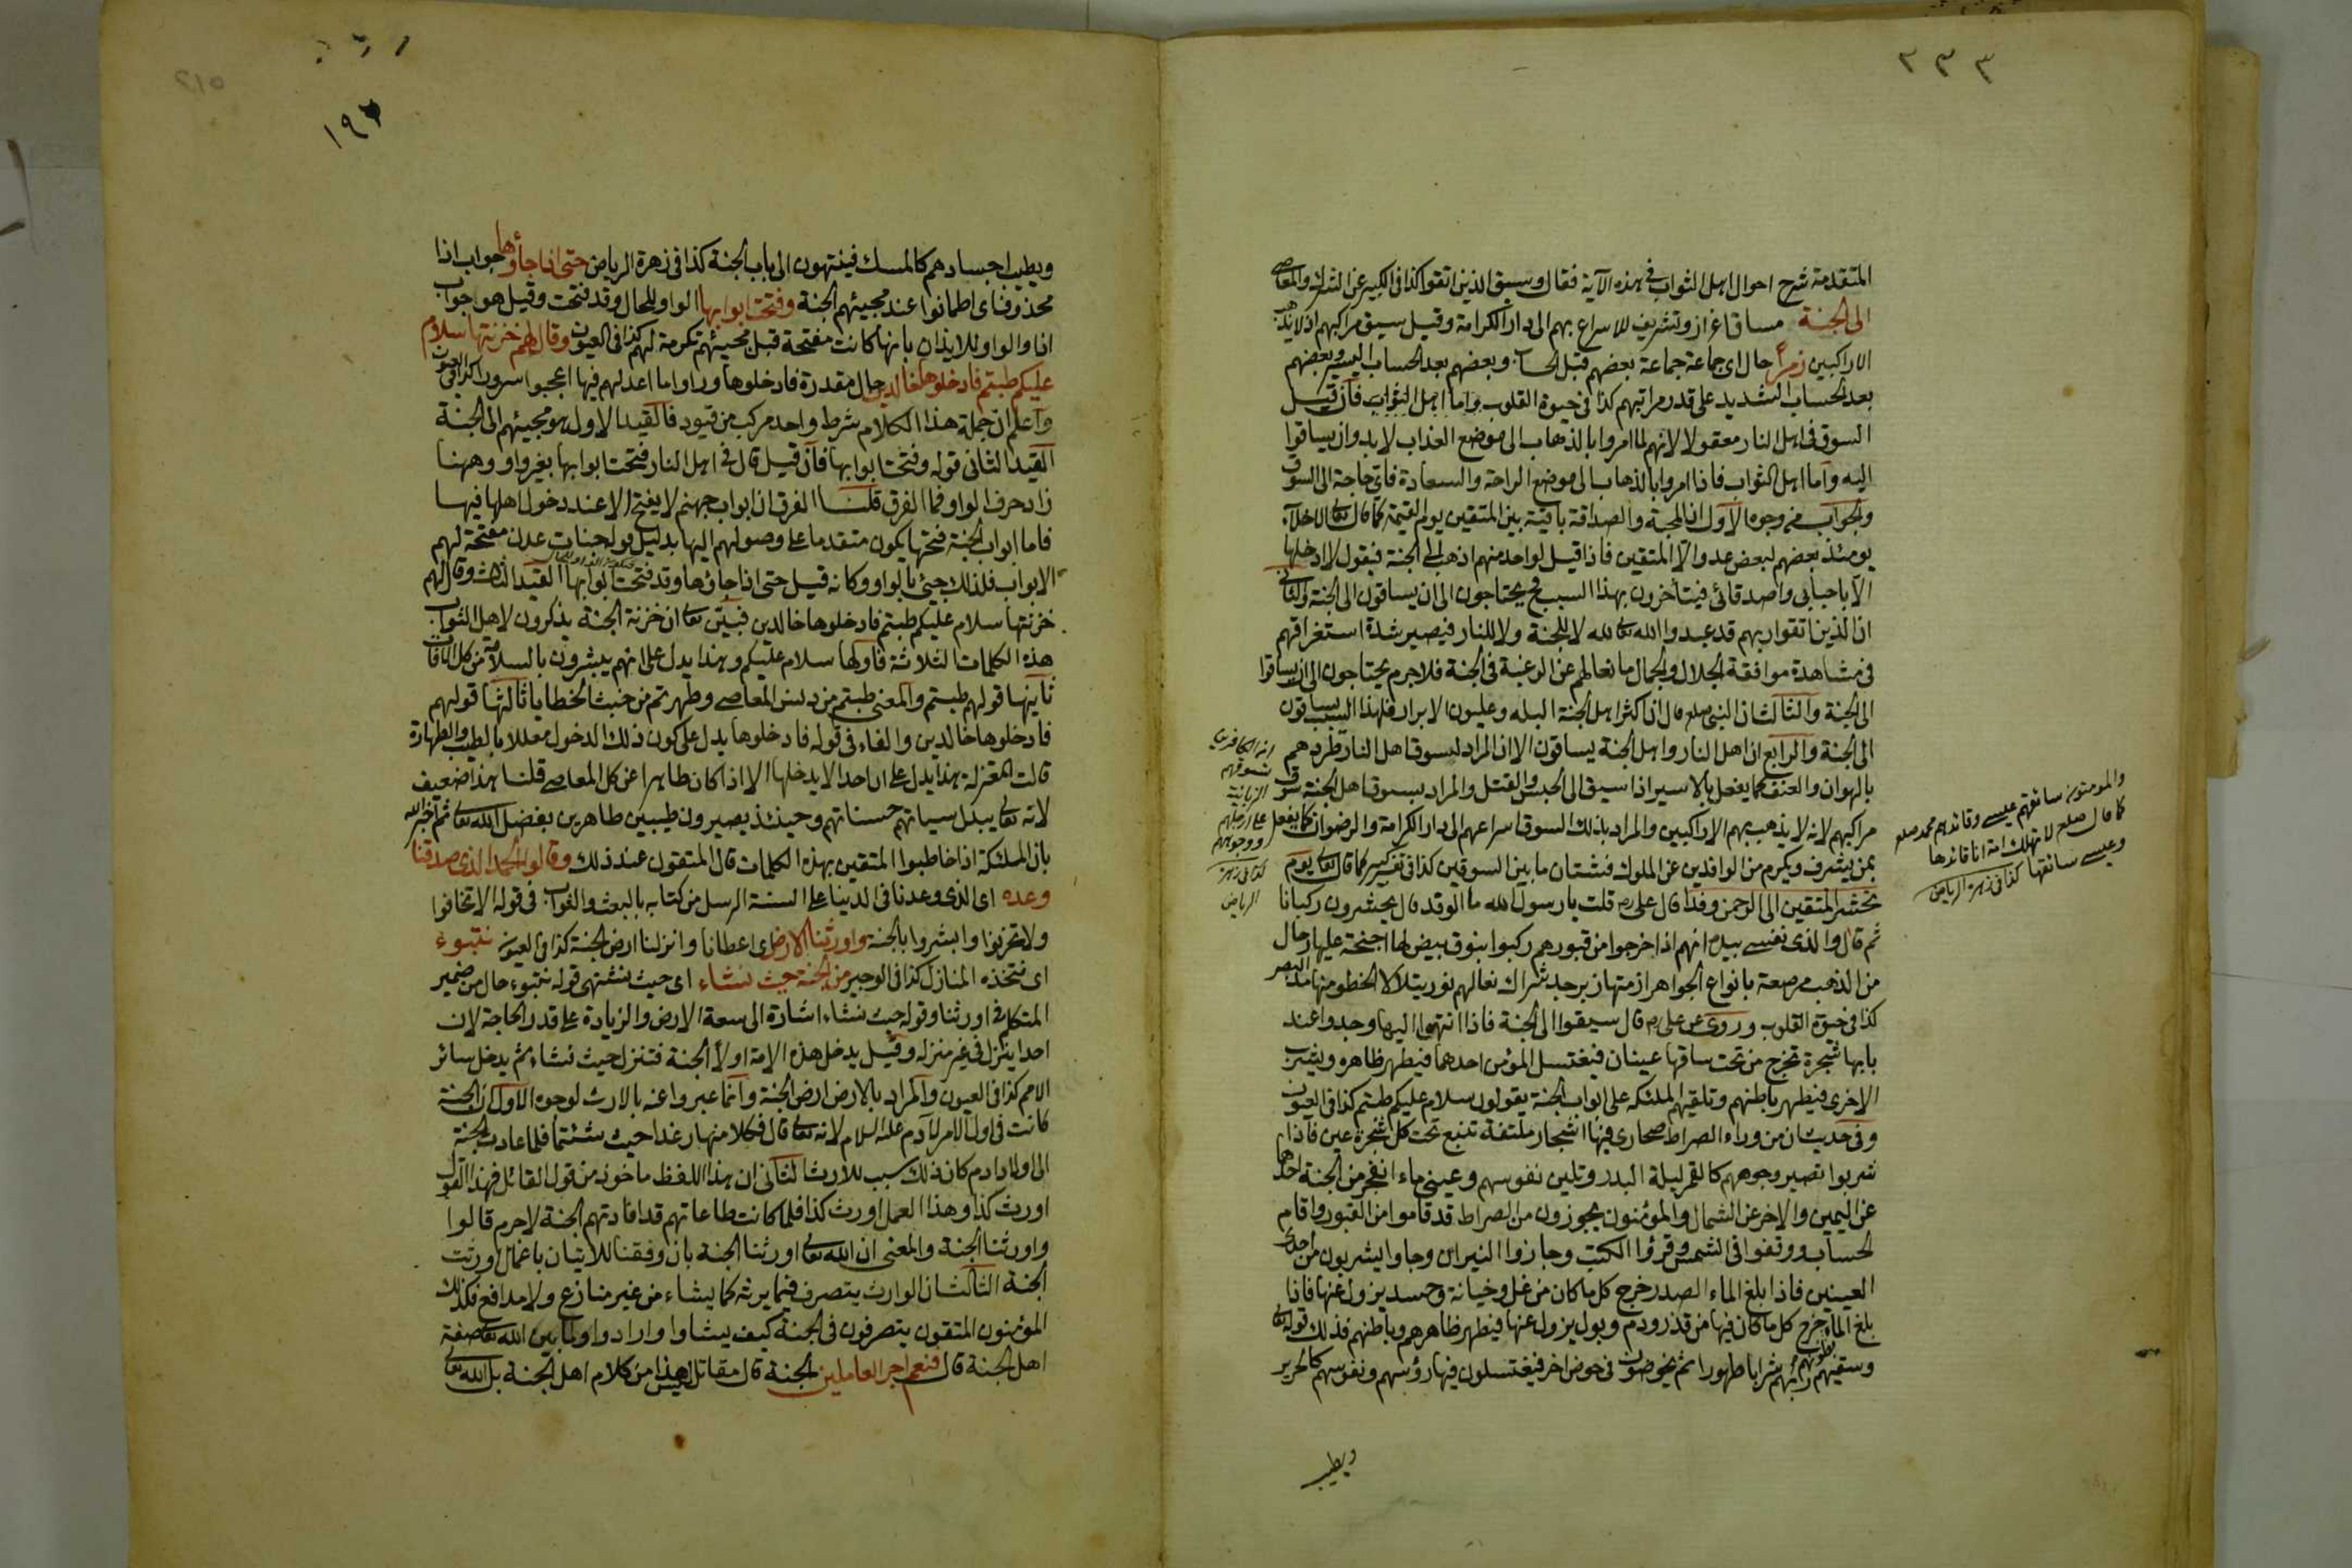 ٣٣٣
المتقدمة شرح احوال اهل الثواب في هذه الآية فقال وسيق الذين اتقوا كذا في الكبير عن الشرك والمعاصي
الى الجنة مساق اعزاز وتشريف للاسراع بهم الى دار الكرامة وقيل سيق مراكبهم اذ لا يذهب بهم
الا راكبين زمرا حال اي جماعة جماعة بعضهم قبل الحساب وبعضهم بعد الحساب اليسير وبعضهم
بعد الحساب الشديد على قدر مراتبهم كذا في حيوة القلوب واما اهل الثواب فان قيل
السوق في اهل النار معقولا لانهم لما امروا بالذهاب الى موضع العذاب لا بد وان يساقوا
اليه واما اهل الثواب فاذا امروا بالذهاب الى موضع الراحة والسعادة فاي حاجة الى السوق
والجواب من وجوه الاول ان المحبة والصداقة باقية بين المتقين يوم القيمة كما قال تعالى الاخلاء
يومئذ بعضهم لبعض عدو الا المتقين فاذا قيل لواحد منهم اذهب الى الجنة فيقول لا ادخلها
الا باحبابي واصدقائي فيتأخرون بهذا السبب فح يحتاجون الى ان يساقون الى الجنة والثاني
ان الذين اتقوا ربهم قد عبدوا الله تعالى لله لا للجنة ولا للنار فيصير شدة استغراقهم
في مشاهدة موافقة الجلال والجمال مانعا لهم عن الرغبة في الجنة فلا جرم يحتاجون الى ان يساقوا
الى الجنة والثالث ان النبي صلعم قال ان اكثر اهل الجنة البله وعليون الابرار فلهذا السبب يساقون
الى الجنة والرابع ان اهل النار واهل الجنة يساقون الا ان المراد بسوق اهل النار طردهم
بالهوان والعنف كما يفعل بالاسير اذا سيق الى الحبس والقتل والمراد بسوق اهل الجنة سوق
مراكبهم لانه لا يذهب بهم الا راكبين والمراد بذلك السوق اسراعهم الى دار الكرامة والرضوان كما يفعل
بمن يشرف ويكرم من الوافدين عن الملوك فشتان ما بين السوقين كذا في تفسير كبير كما قال تعالى يوم
نحشر المتقين الى الرحمن وفدا قال على رض قلت يا رسول الله ما الوفد قال يحشرون ركبانا
ثم قال والذي نفسي بيده انهم اذا خرجوا من قبورهم ركبوا بنوق بيض لها اجنحة عليها رحال
من الذهب مرصعة بانواع الجواهر ازمتها زبرجد شراك نعالهم نور يتلألأ الخطو منها مد البصر
كذا في حيوة القلوب وروى عن على رض قال سيقوا الى الجنة فاذا انتهوا اليها وجدوا عند
بابها شجرة تخرج من تحت ساقها عينان فيغتسل المؤمن احدهما فيطهر ظاهره ويشرب
الاخرى فيطهر باطنهم وتلقيهم الملئكة على ابواب الجنة يقولون سلام عليكم طبتم كذا في العيون
وفي حديث ان من وراء الصراط صحارى فيها اشجار ملتفة تنبع تحت كل شجرة عين فاذا
شربوا تصير وجوههم كالقمر ليلة البدر وتلين نفوسهم وعيني ماء انفجر من الجنة احدهما
عن اليمين والاخر عن الشمال والمؤمنون يجوزون من الصراط قد قاموا من القبور واقام
لحساب ووقفوا في الشمس وقرؤا الكتب وجازوا النيران وجاوا يشربون من احدى
العينين فاذا بلغ الماء الصدر خرج كل ما كان من غل وخيانة وحسد يزول عنها فاذا
بلغ الماء بطونهم خرج كل ما كان فيها من قذر ودم وبول يزول عنها فيطهر ظاهرهم وباطنهم فذلك قوله تعالى
وسقيهم ربهم شرابا طهورا ثم يخوضون في حوض اخر فيغتسلون فيها رؤسهم ونفوسهم كالحرير
ويطيب
ان الكافرين
تسوقهم
الزبانية
على ارجلهم
ووجوههم
كذا في زهرة
الرياض
والمومنون سائقهم عيسى وقائدهم محمد صلعم
كما قال صلعم لا تهلك امة انا قائدها
وعيسى سائقها كذا في زهرة الرياض
١٩٣
ويطيب اجسادهم كالمسك فينتهون الى باب الجنة كذا في زهرة الرياض حتى اذا جاؤها جواب اذا
محذوف اي اطمانوا عند مجيئهم الجنة وفتحت ابوابها الواو للحال وقد فتحت وقيل هو جواب
اذا والواو للايذان بانها كانت مفتحة قبل مجيئهم تكرمة لهم كذا في العيون وقال لهم خزنتها سلام
عليكم طبتم فادخلوها خالدين حال مقدرة فادخلوها وراوا ما اعد لهم فيها اعجبوا سرورا كذا في العيون
واعلم ان جملة هذا الكلام شرط واحد مركب من قيود فالقيد الاول هو مجيئهم الى الجنة
القيد الثاني قوله وفتحت ابوابها فان قيل قال في اهل النار فتحت ابوابها بغير واو وههنا
زاد حرف الواو فما الفرق قلنا الفرق ان ابواب جهنم لا يفتح الا عند دخول اهلها فيها
فاما ابواب الجنة فتحها يكون متقدما على وصولهم اليها بدليل قوله جنات عدن مفتحة لهم
الابواب فلذلك جيئ بالواو وكانه قيل حتى اذا جاؤها وقد فتحت ابوابها القيد الثالث وقال لهم
خزنتها سلام عليكم طبتم فادخلوها خالدين فبين تعالى ان خزنة الجنة يذكرون لاهل الثواب
هذه الكلمات الثلاثة فاولها سلام عليكم وهذا يدل على انهم يبشرون بالسلامة من كل الآفات
ثانيها قولهم طبتم والمعنى طبتم من دنس المعاصي وطهرتم من خبث الخطايا ثالثها قولهم
فادخلوها خالدين والفاء في قوله فادخلوها يدل على كون ذلك الدخول معللا بالطيب والطهارة
قالت المعتزلة هذا يدل على ان احدا لا يدخلها الا اذا كان طاهرا عن كل المعاصي قلنا هذا ضعيف
لانه تعالى يبدل سيئاتهم حسناتهم وحينئذ يصيرون طيبين طاهرين بفضل الله تعالى ثم اخبر الله
بان الملئكة اذا خاطبوا المتقين بهذه الكلمات قال المتقون عند ذلك وقالوا الحمد لله الذي صدقنا
وعده اي الذي وعدنا في الدنيا على السنة الرسل من كتابه بالبعث والثواب في قوله الا تخافوا
ولا تحزنوا وابشروا بالجنة واورثنا الارض اي اعطانا وانزلنا ارض الجنة كذا في العيون نتبوء
اي نتخذه المنازل كذا في الوجيز من الجنة حيث نشاء اي حيث نشتهي قوله نتبوء حال من ضمير
المتكلم في اورثنا وقوله حيث نشاء اشارة الى سعة الارض والزيادة على قدر الحاجة لان
احدا ينزل في غير منزله وقيل يدخل هذه الامة اولا الجنة فتنزل حيث تشاء ثم يدخل سائر
الامم كذا في العيون والمراد بالارض ارض الجنة وانما عبروا عنه بالارث لوجوه الاول ان الجنة
كانت في اول الامر لآدم عليه السلام لانه تعالى قال فكلا منها رغدا حيث شئتما فلما عادت الجنة
الى اولاد ادم كان ذلك سبب للارث الثاني ان هذا اللفظ ماخوذ من قول القائل فهذا القول
اورث كذا وهذا العمل اورث كذا فلما كانت طاعاتهم قد افادتهم الجنة لا جرم قالوا
واورثنا الجنة والمعنى ان الله تعالى اورثنا الجنة بان وفقنا للاتيان باعمال اورثت
الجنة الثالث ان الوارث يتصرف فيما يرثه كما يشاء من غير منازع ولا مدافع فكذلك
المؤمنون المتقون يتصرفون في الجنة كيف يشاوا وارادوا ولما بين الله تعالى صفة
اهل الجنة قال فنعم اجر العاملين الجنة قال مقاتل ليس هذا من كلام اهل الجنة بل الله تعالى